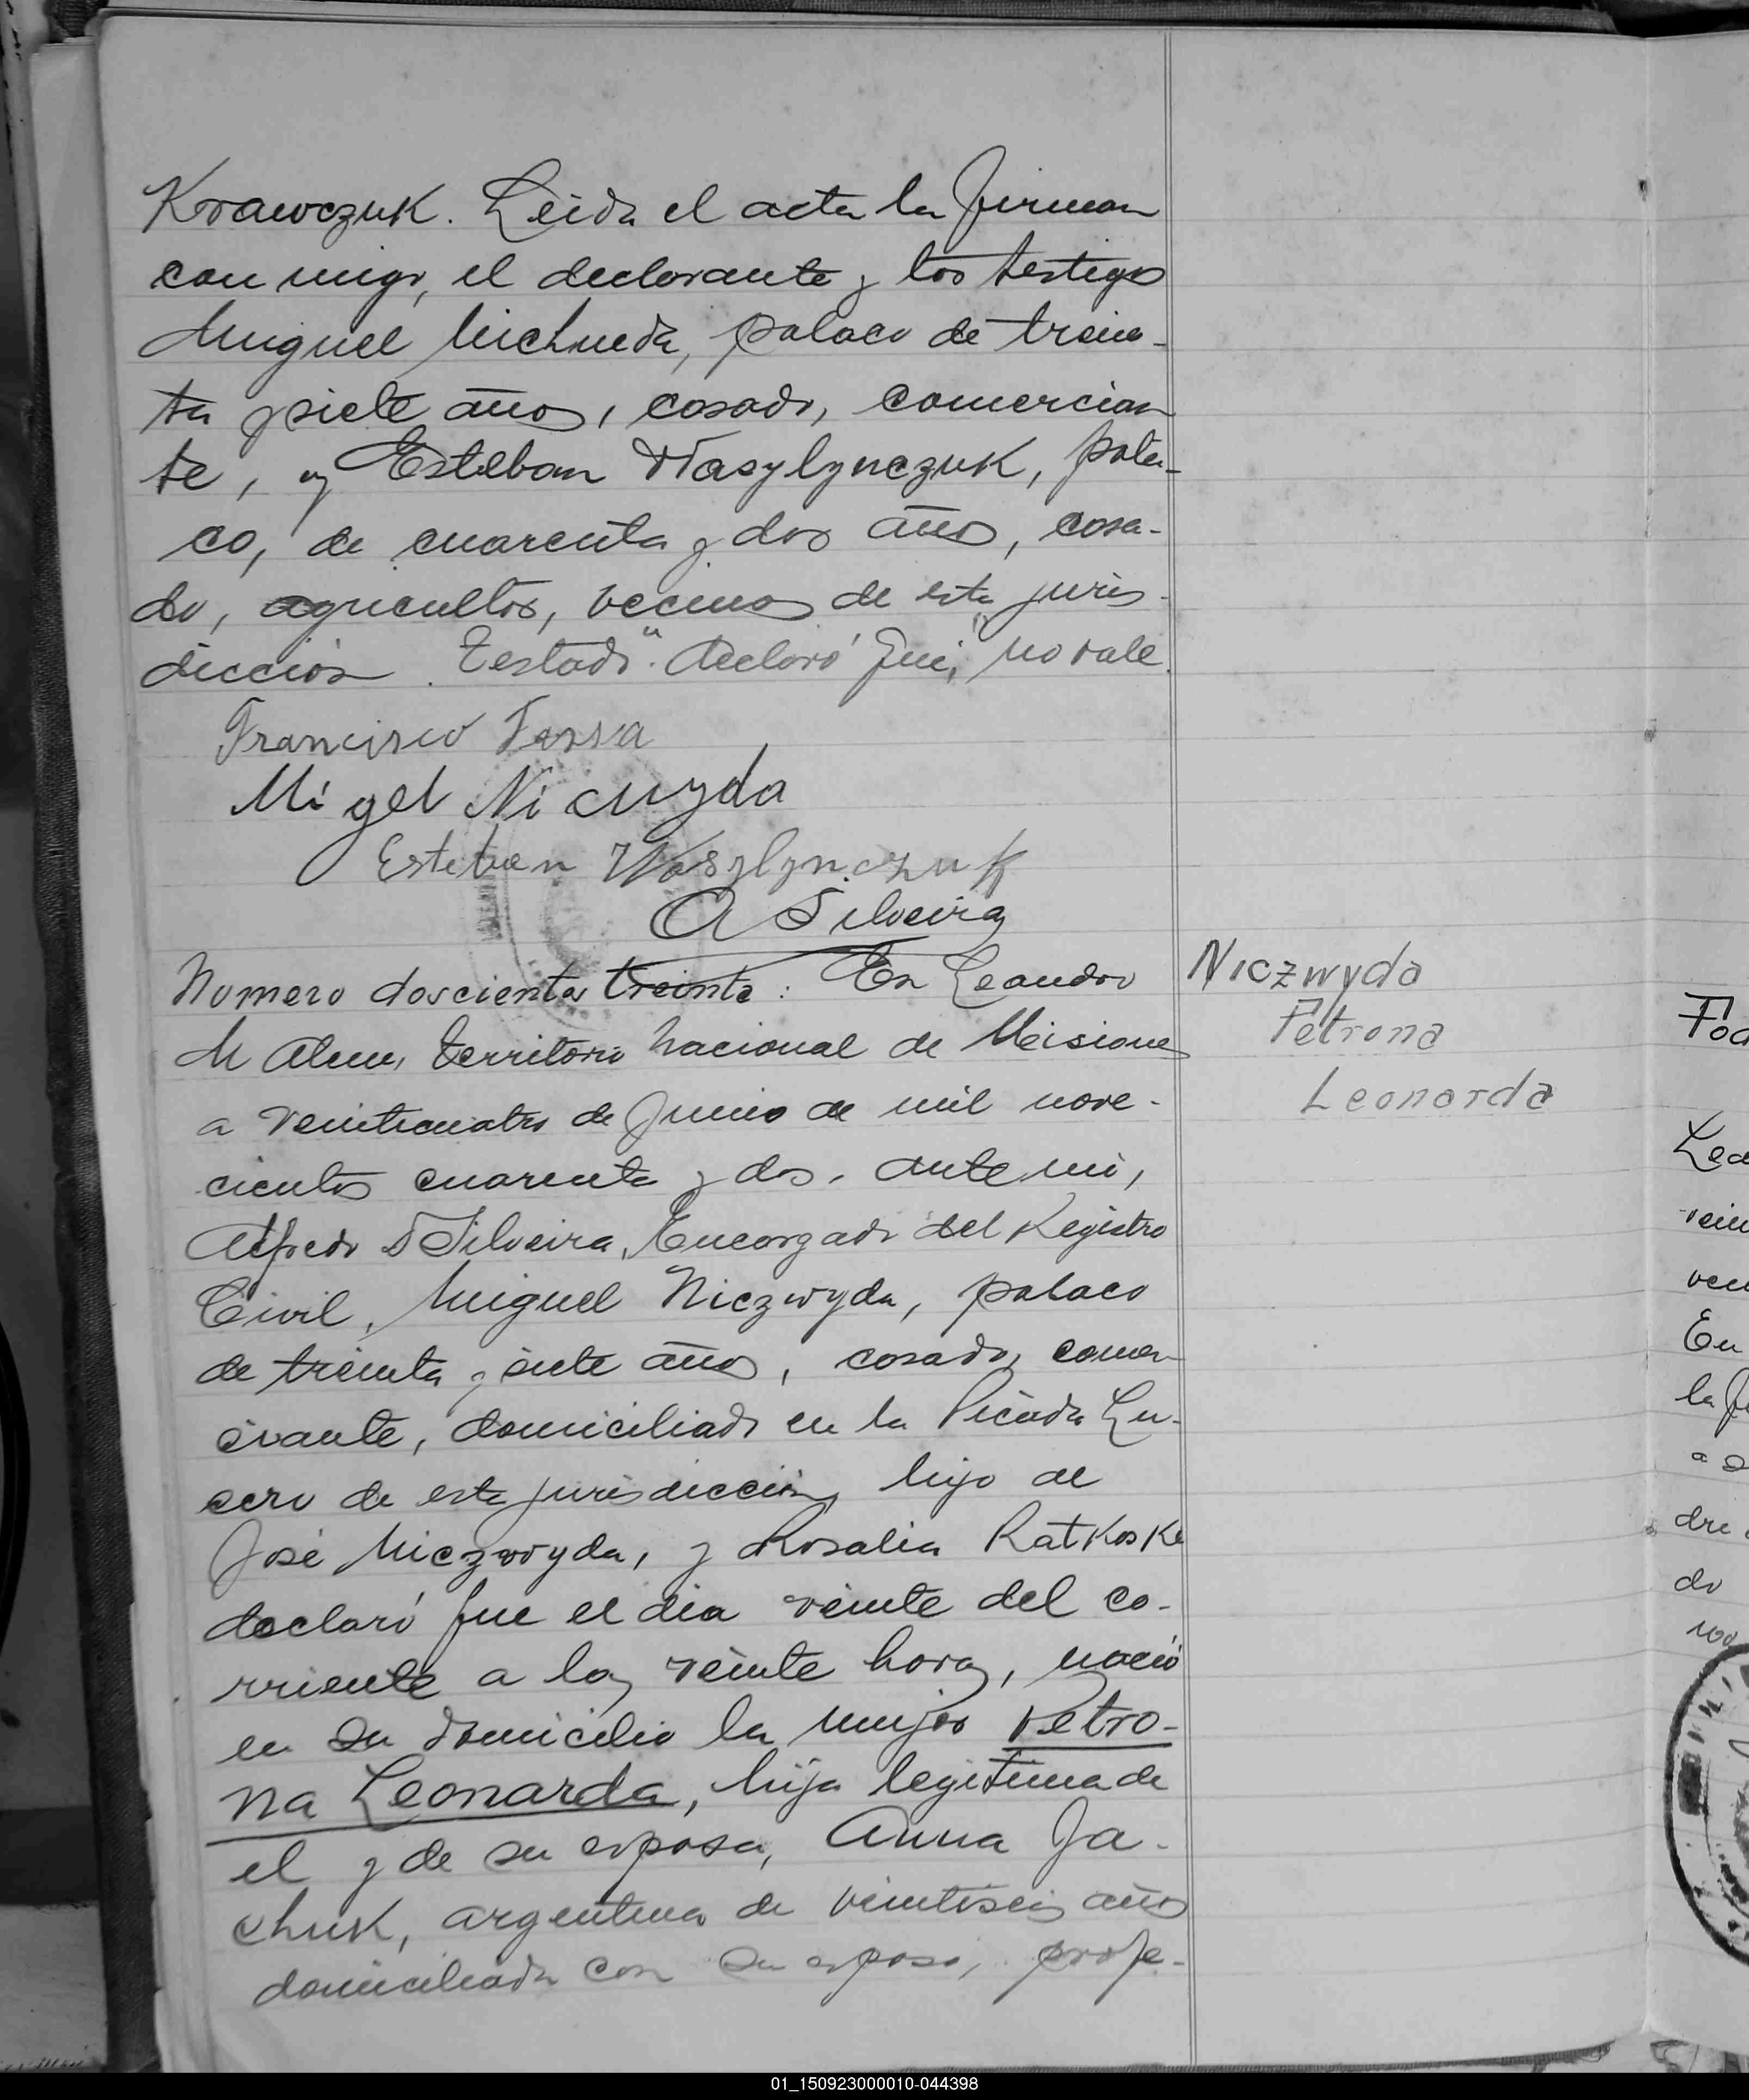 Krawczuk. Leida el acta la firman
conmigo, el declarante y los testigos
Miguel Nichueda, polaco de trein-
ta y siete años, casado, comercian
te, y Esteban Wasylynczuk, pola-
co, de cuarenta y dos años, casa-
do, agricultor, vecinos de esta juris-
dicción. Testado "declaró que" no vale.
Francisco
Migel Nicuyda
Esteban Wasylynczuk
A Silveira
Numero doscientos treinta: En Leandro
N Alem, territorio nacional de Misiones
a veinticuatro de Junio de mil nove-
cientos cuarenta y dos, ante mi,
Alfredo D Silveira, Encargado del Registro
Civil, Miguel Niczwyda, polaco
de treinta y siete años, casado, comer-
ciante, domiciliado en la Picada Lu-
cero de esta jurisdicción, hijo de
José Niczwyda, y Rosalia Ratkoske
declaró que el dia veinte del co-
rriente a las veinte horas, nació
en su domicilio la mujer Petro-
na Leonarda, hija legitima de
el y de su esposa, Anna Ja-
chuk, argentina de veintiseis años
domiciliada con su esposo, profe-
Niczwyda
Petrona
Leonarda